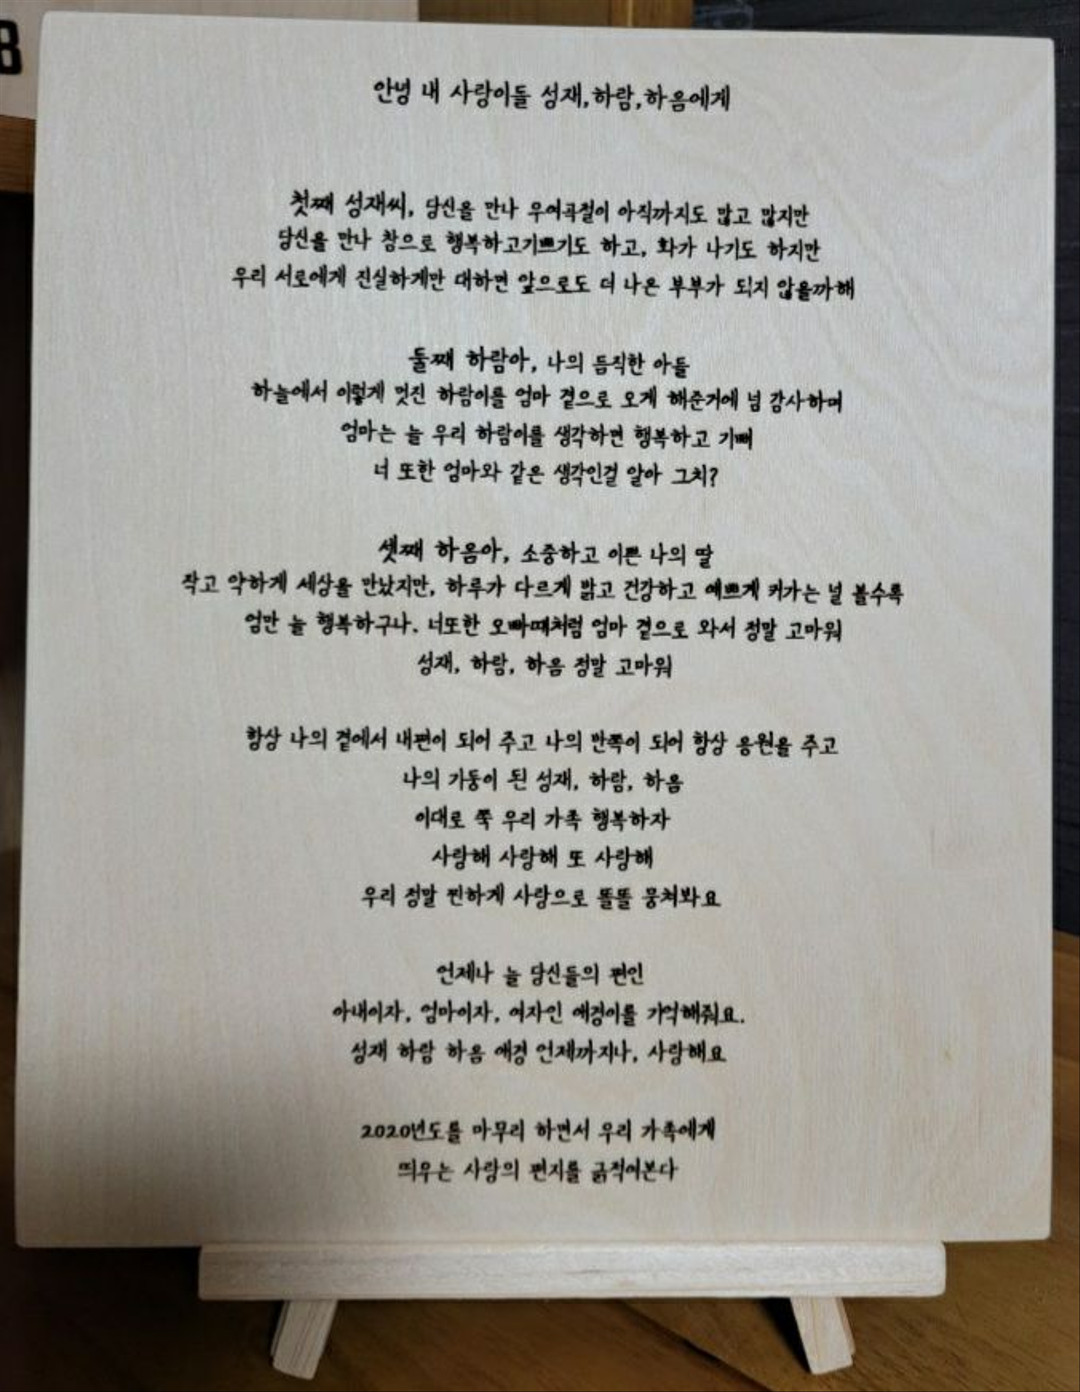 B
안녕 내 사랑이들 성재,하람,하음에게
첫째 성재씨, 당신을 만나 우여곡절이 아직까지도 많고 많지만
당신을 만나 참으로 행복하고기쁘기도 하고, 화가 나기도 하지만
우리 서로에게 진실하게만 대하면 앞으로도 더 나은 부부가 되지 않을까해
둘째 하람아, 나의 듬직한 아들
하늘에서 이렇게 멋진 하람이를 엄마 곁으로 오게 해준거에 넘 감사하며
엄마는 늘 우리 하람이를 생각하면 행복하고 기뻐
너 또한 엄마와 같은 생각인걸 알아 그치?
셋째 하음아, 소중하고 이쁜 나의 딸
작고 약하게 세상을 만났지만, 하루가 다르게 밝고 건강하고 예쁘게 커가는 널 볼수록
엄만 늘 행복하구나. 너또한 오빠때처럼 엄마 곁으로 와서 정말 고마워
성재, 하람, 하음 정말 고마워
항상 나의 곁에서 내편이 되어 주고 나의 반쪽이 되어 항상 응원을 주고
나의 가둥이 된 성재, 하람, 하음
이대로 쭉 우리 가족 행복하자
사랑해 사랑해 또 사랑해
우리 정말 찐하게 사랑으로 똘똘 뭉쳐봐요
언제나 늘 당신들의 편인
아내이자, 엄마이자, 여자인 애경이를 기억해줘요.
성재 하람 하음 애경 언제까지나, 사랑해요
2020년도를 마무리 하면서 우리 가족에게
띄우는 사랑의 편지를 긁적여본다